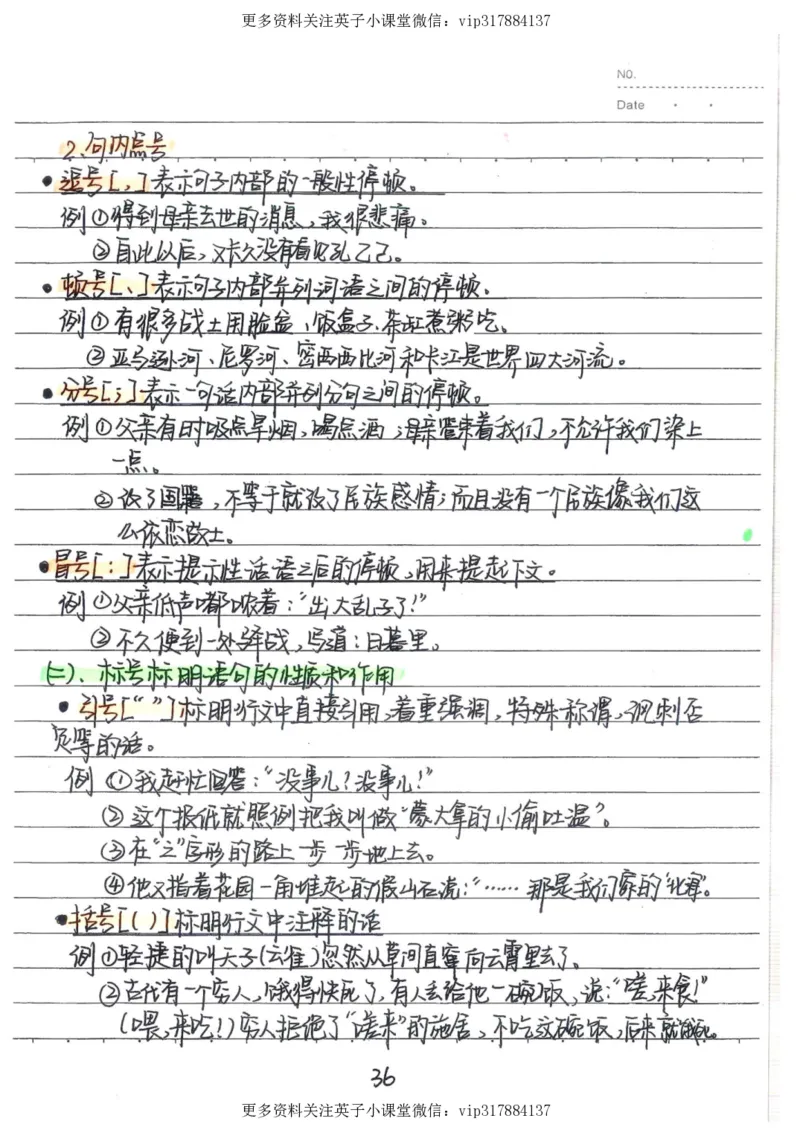 更多资料关注英子小课堂微信：vip317884137
NO.
Date
2、句内点号
• 逗号[，]表示句子内部的一般性停顿。
例①得到母亲去世的消息，我很悲痛。
②自此以后，又长久没有看见孔乙己。
• 顿号[、]表示句子内部并列词语之间的停顿。
例①有很多战士用脸盆、饭盒子、茶缸煮粥吃。
②亚马逊河、尼罗河、密西西比河和长江是世界四大河流。
• 分号[；]表示一句话内部并列分句之间的停顿。
例①父亲有时吸点旱烟，喝点酒；母亲管束着我们，不允许我们染上
一点。
②改了国籍，不等于就改了民族感情；而且没有一个民族像我们这
么依恋故土。
• 冒号[：]表示提示性话语之后的停顿，用来提起下文。
例①父亲低声嘟哝着：“出大乱子了！”
②不久便到一处驿站，写道：日暮里。
(二)、标号标明语句的性质和作用
• 引号[“ ”]标明行文中直接引用，着重强调，特殊称谓，讽刺否
定等的话。
例 ①我赶忙回答：“没事儿？没事儿！”
②这个报纸就照例把我叫做“蒙大拿的小偷吐温”。
③在“之”字形的路上一步一步地上去。
④他又指着花园一角堆起的假山石说：“……那是我们家的‘北海’。
• 括号[( )]标明行文中注释的话
例①轻捷的叫天子(云雀)忽然从草间直窜向云霄里去了。
②古代有一个穷人，饿得快死了，有人丢给他一碗饭，说：“嗟，来食！”
(喂，来吃！)穷人拒绝了“嗟来”的施舍，不吃这碗饭，后来就饿死。
36
更多资料关注英子小课堂微信：vip317884137